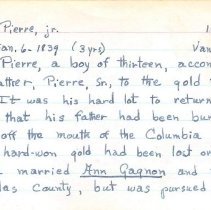 Pierre, jr. 1
an. 6. 1839 (3 yrs) Van
Pierre, a boy of thirteen, accom
ather, Pierre, Sr, to the gold
It was his hard lot to return
that his father had been bur
off the mouth of the Columbia
hard-won gold had been lost or
married Ann Gagnon and
las County, but was pursued